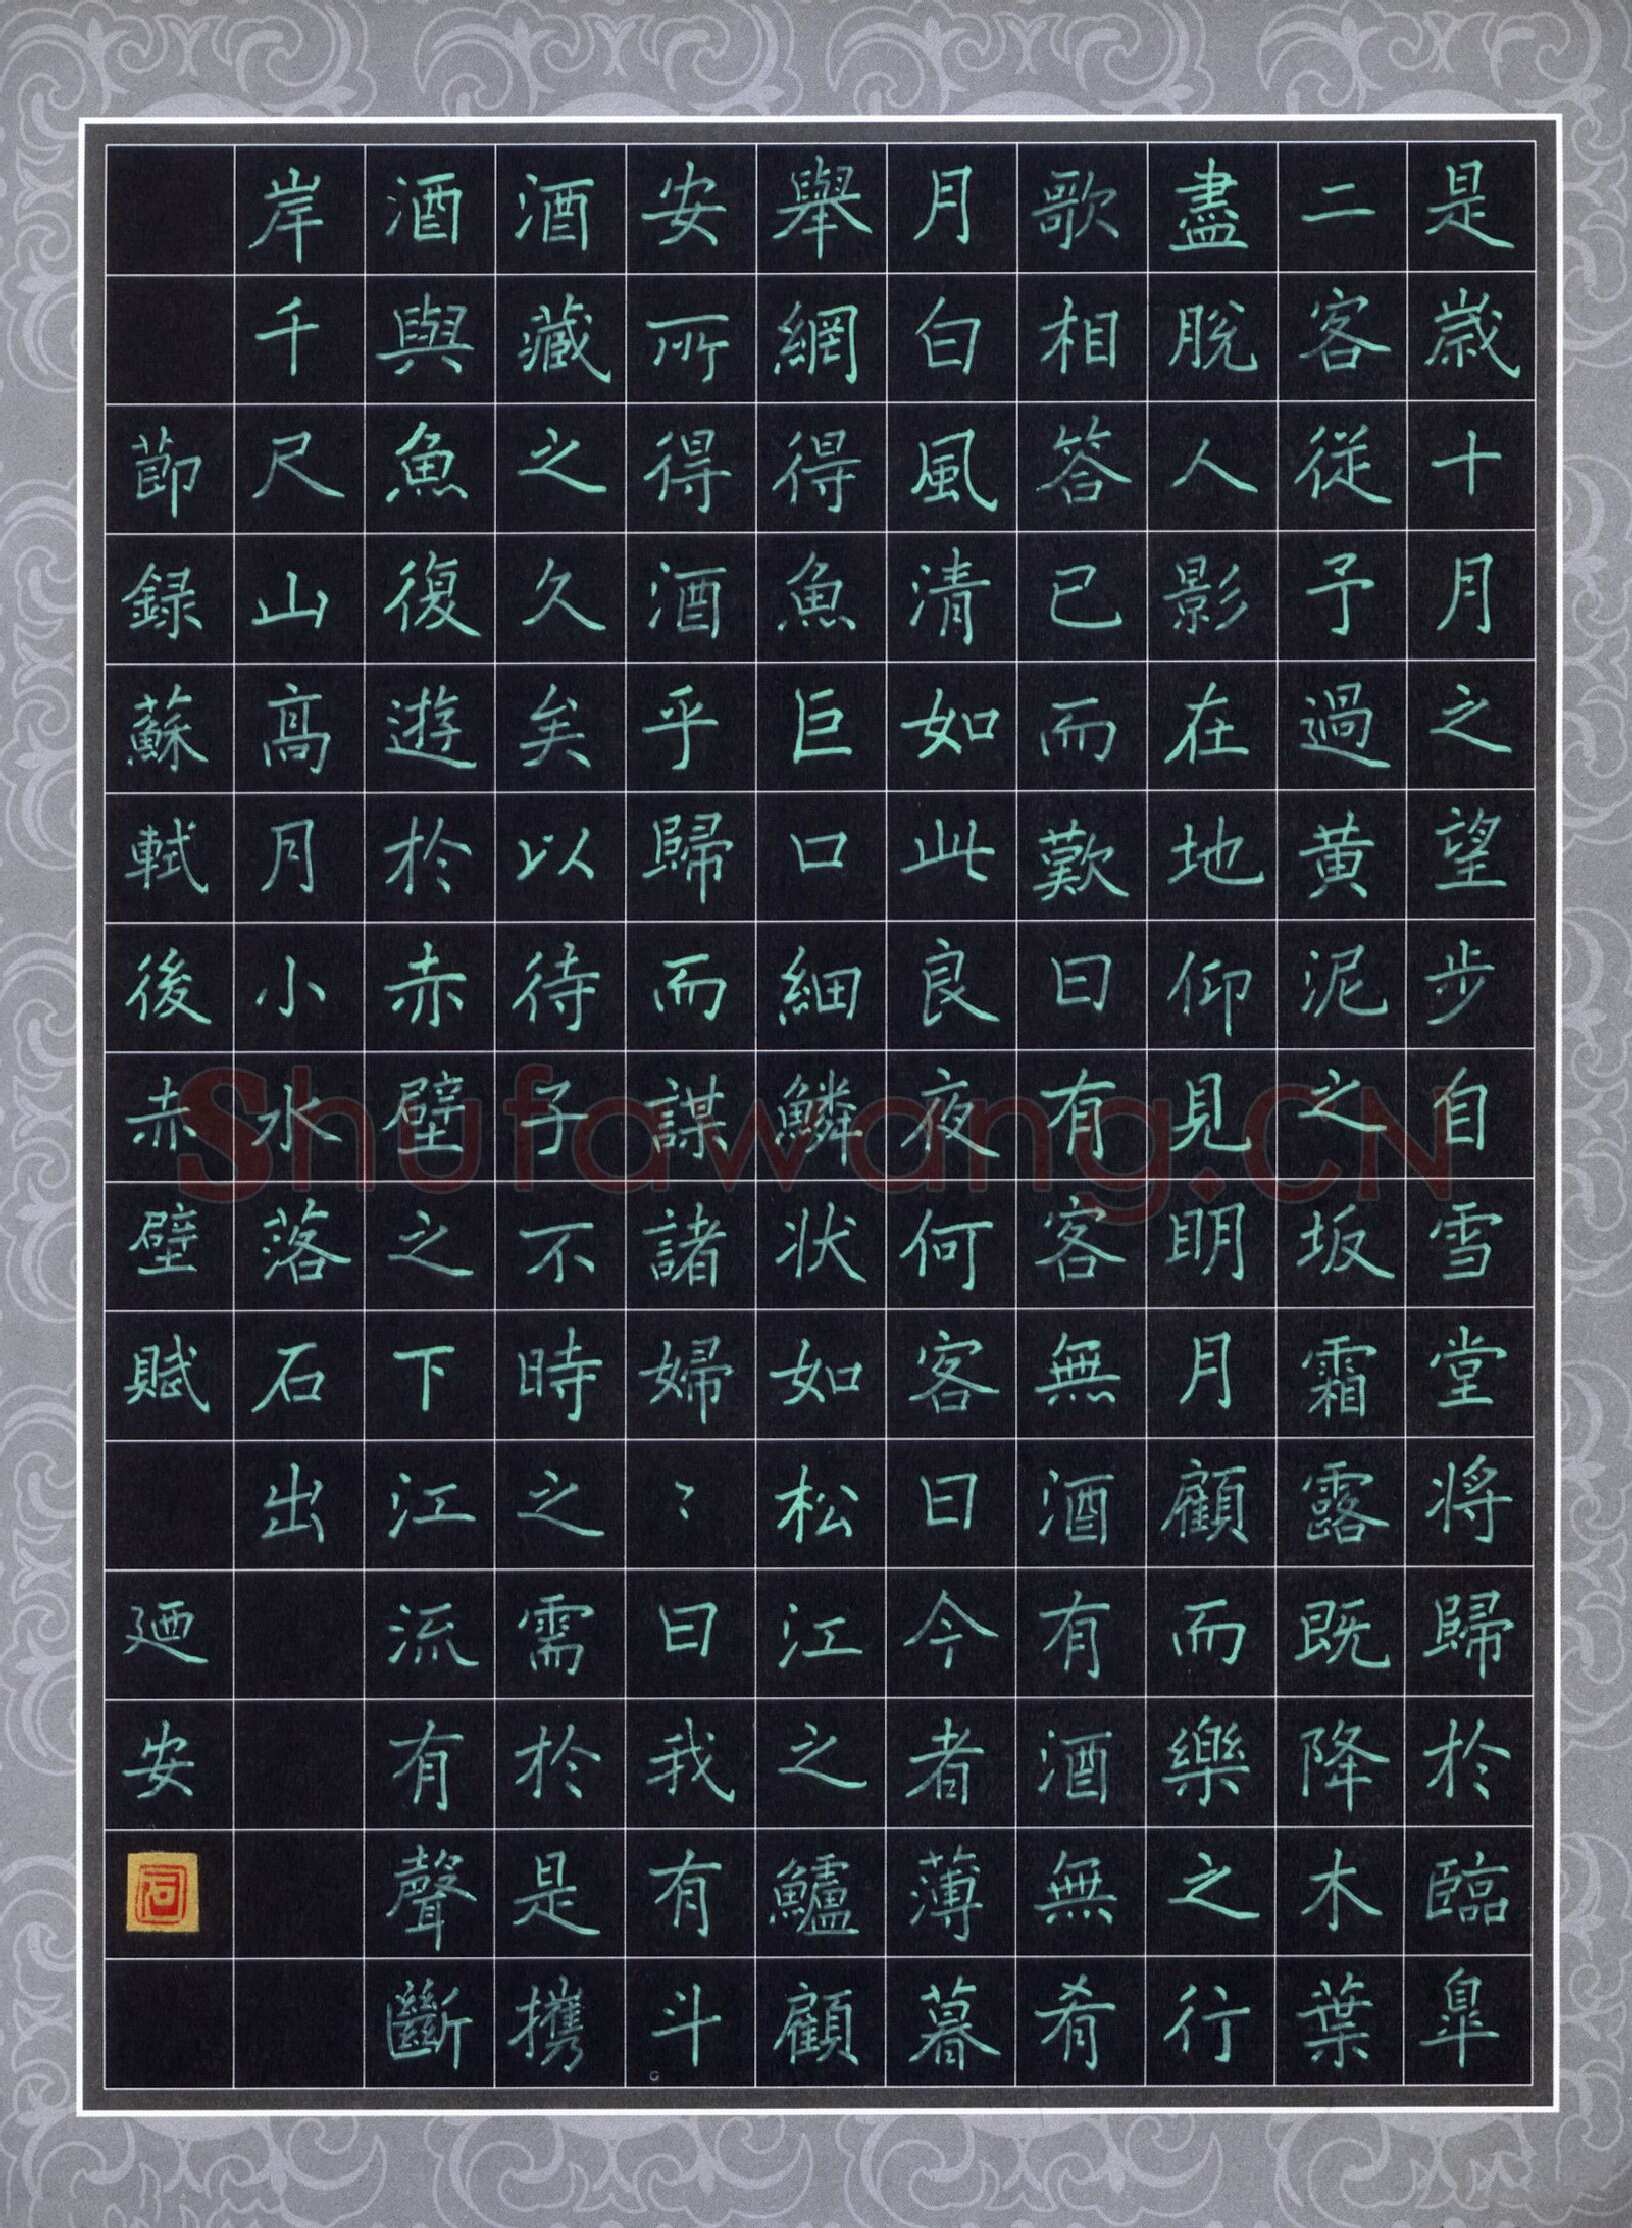 是歲十月之望步自雪堂将歸於臨皐
二客従予過黄泥之坂霜露既降木葉
盡脫人影在地仰見明月顧而樂之行
歌相答已而歎曰有客無酒有酒無肴
月白風清如此良夜何客曰今者薄暮
舉網得魚巨口細鱗状如松江之鱸顧
安所得酒乎歸而謀諸婦〻曰我有斗
酒藏之久矣以待子不時之需於是携
酒與魚復遊於赤壁之下江流有聲斷
岸千尺山高月小水落石出
節録蘇軾後赤壁賦 廼安
Shufawang.CN